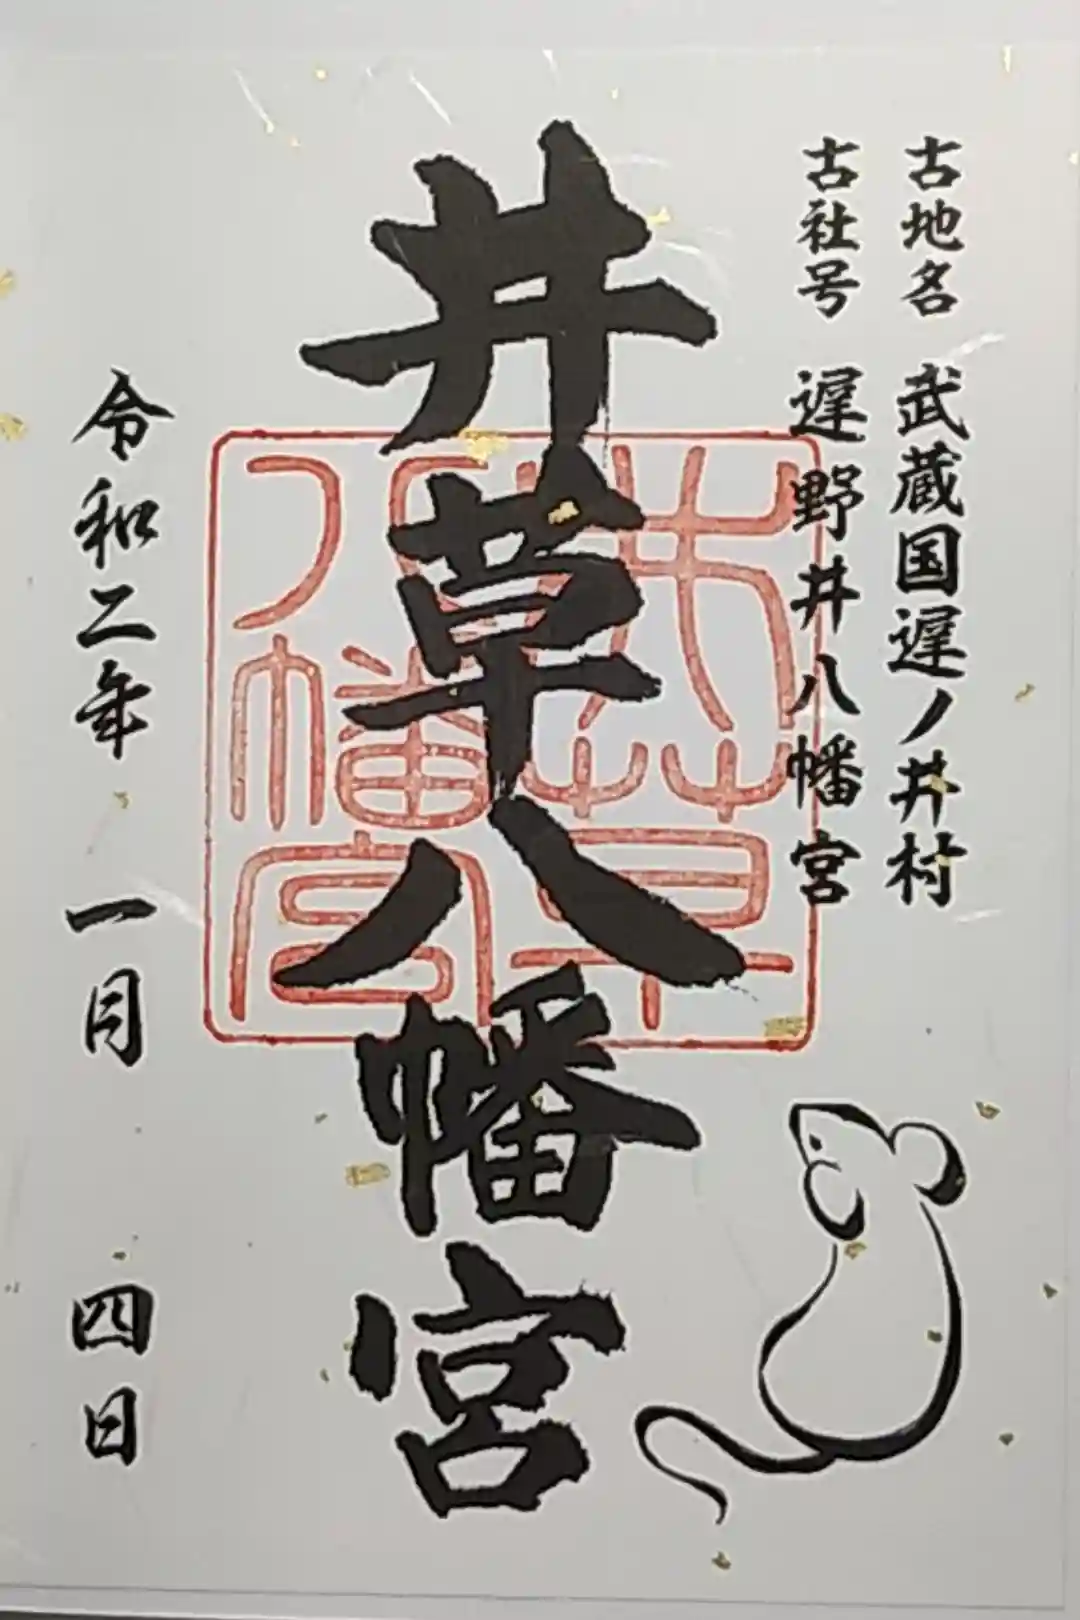 古地名 武蔵国遅ノ井村
古社号 遅野井八幡宮
井草八幡宮
井草八幡宮
令和二年 一月 四日